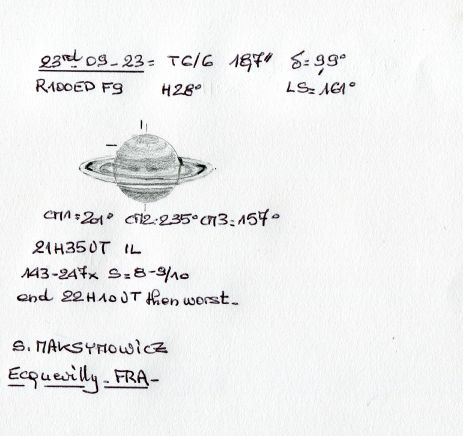 23rd 09-23 = TC/6 18,7" δ= 9,9°
R100ED F9 H28° LS= 161°
CM1 = 201° CM2 = 235° CM3 = 157°
21H35UT IL
143-247x S= 8-9/10
end 22H10UT then worst-
S. MAKSYMOWICZ
Ecquevilly - FRA -